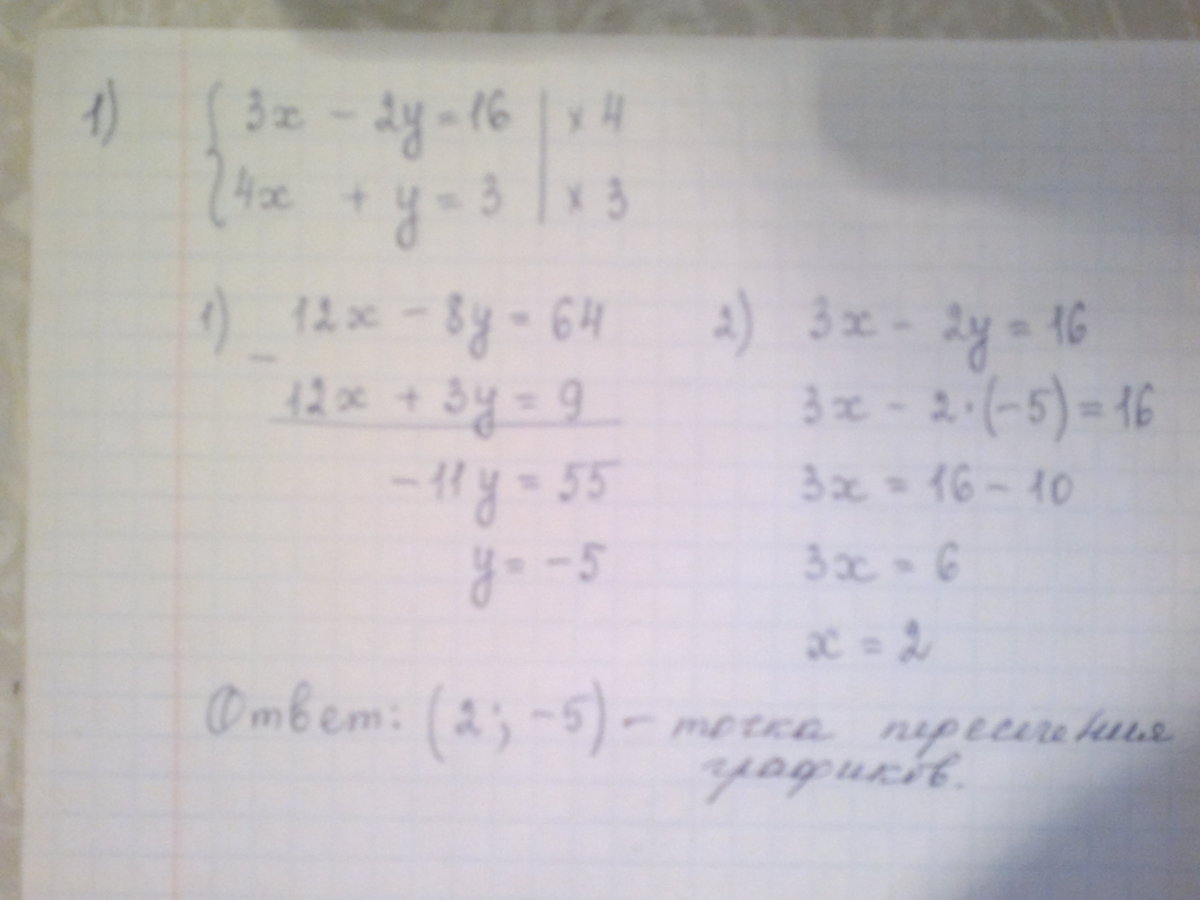 1) { 3x - 2y = 16 | × 4
4x + y = 3 | × 3
1) 12x - 8y = 64
-
12x + 3y = 9
-11y = 55
y = -5
2) 3x - 2y = 16
3x - 2·(-5) = 16
3x = 16 - 10
3x = 6
x = 2
Ответ: (2; -5) - точка пересечения
графиков.